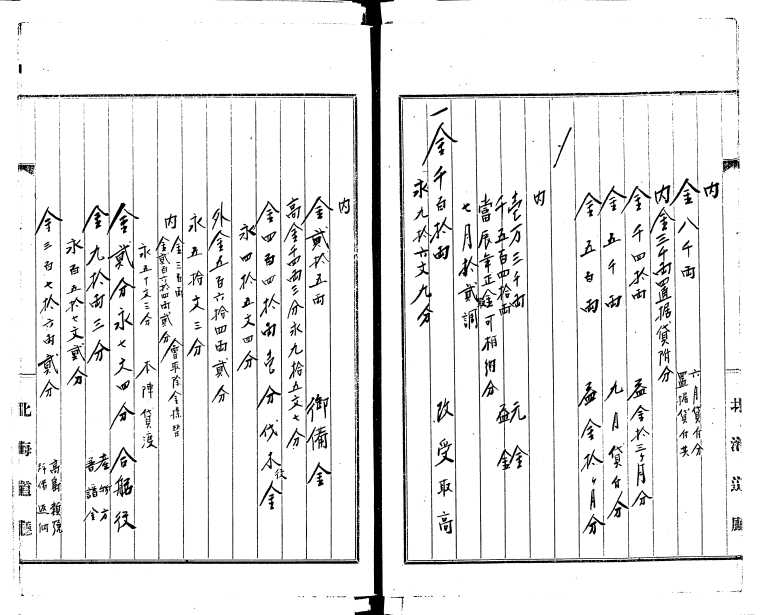 内
金八千両 六月貸付分
置据貸付共
内金三千両置据貸附分
金千四拾両 益金拾三ヶ月分
金五千両 九月貸付分
金五百両 益金拾ヶ月分
内
壱万三千両 元金
千五百四拾両 益金
當辰年正金可相納分
七月拾貳調
一金千百拾両 改受取高
永九拾六文九分
内
金貳拾五両 御備金
高金千両三分永九拾五文七分
金四百四拾両壱分 伐木後金
永四拾五文四分
外金五百六拾四両貳分
永五拾文三分
内金三百両
金貳百六拾四両貳分
永五十文三分 本陣貸渡
金貳分永七文四分
金九拾両三分
永百五拾七文貳分
金三百七拾六両貳分
北海道廳
北海道廳